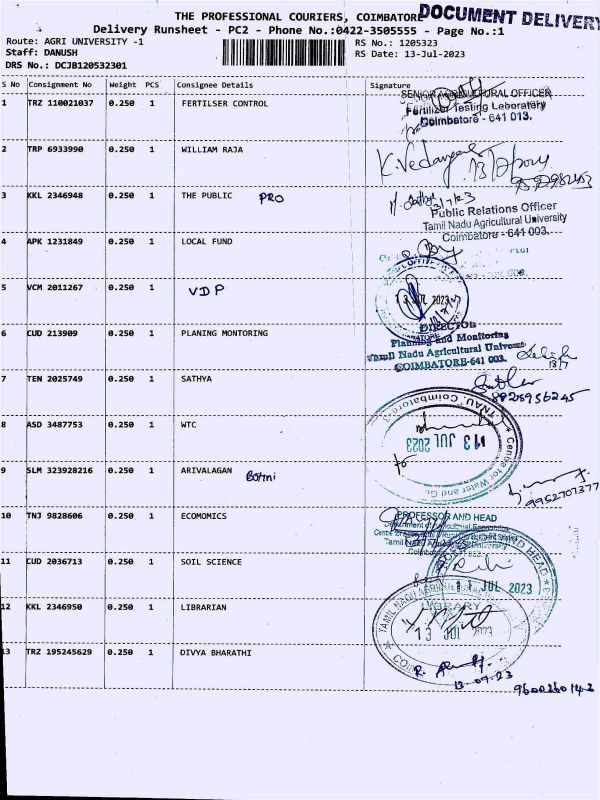 THE PROFESSIONAL COURIERS, COIMBATORE
DOCUMENT DELIVERY
Delivery Runsheet - PC2 - Phone No.:0422-3505555 - Page No.:1
Route: AGRI UNIVERSITY -1
RS No.: 1205323
Staff: DANUSH
RS Date: 13-Jul-2023
DRS No.: DCJB120532301
S No Consignment No Weight PCS Consignee Details Signature
1 TRZ 110021037 0.250 1 FERTILSER CONTROL
SENIOR AGRICULTURAL OFFICER
Fertilizer Testing Laboratory
Coimbatore - 641 013.
2 TRP 6933990 0.250 1 WILLIAM RAJA
3 KKL 2346948 0.250 1 THE PUBLIC PRO
Public Relations Officer
Tamil Nadu Agricultural University
Coimbatore - 641 003.
4 APK 1231849 0.250 1 LOCAL FUND
5 VCM 2011267 0.250 1 VDP
13 JUL 2023
6 CUD 213909 0.250 1 PLANING MONTORING
DIRECTOR
Planning and Monitoring
Tamil Nadu Agricultural University
COIMBATORE-641 003.
7 TEN 2025749 0.250 1 SATHYA
8825956245
8 ASD 3487753 0.250 1 WTC
TNAU, Coimbatore-3
13 JUL 2023
Centre for Water and
9 SLM 323928216 0.250 1 ARIVALAGAN
9952707377
10 TNJ 9828606 0.250 1 ECOMOMICS
PROFESSOR AND HEAD
11 CUD 2036713 0.250 1 SOIL SCIENCE
AND HEAD
11 JUL 2023
12 KKL 2346950 0.250 1 LIBRARIAN
TAMIL NADU AGRICULTURAL
LIBRARY
13 JUL 2023
13 TRZ 195245629 0.250 1 DIVYA BHARATHI
13-07-23